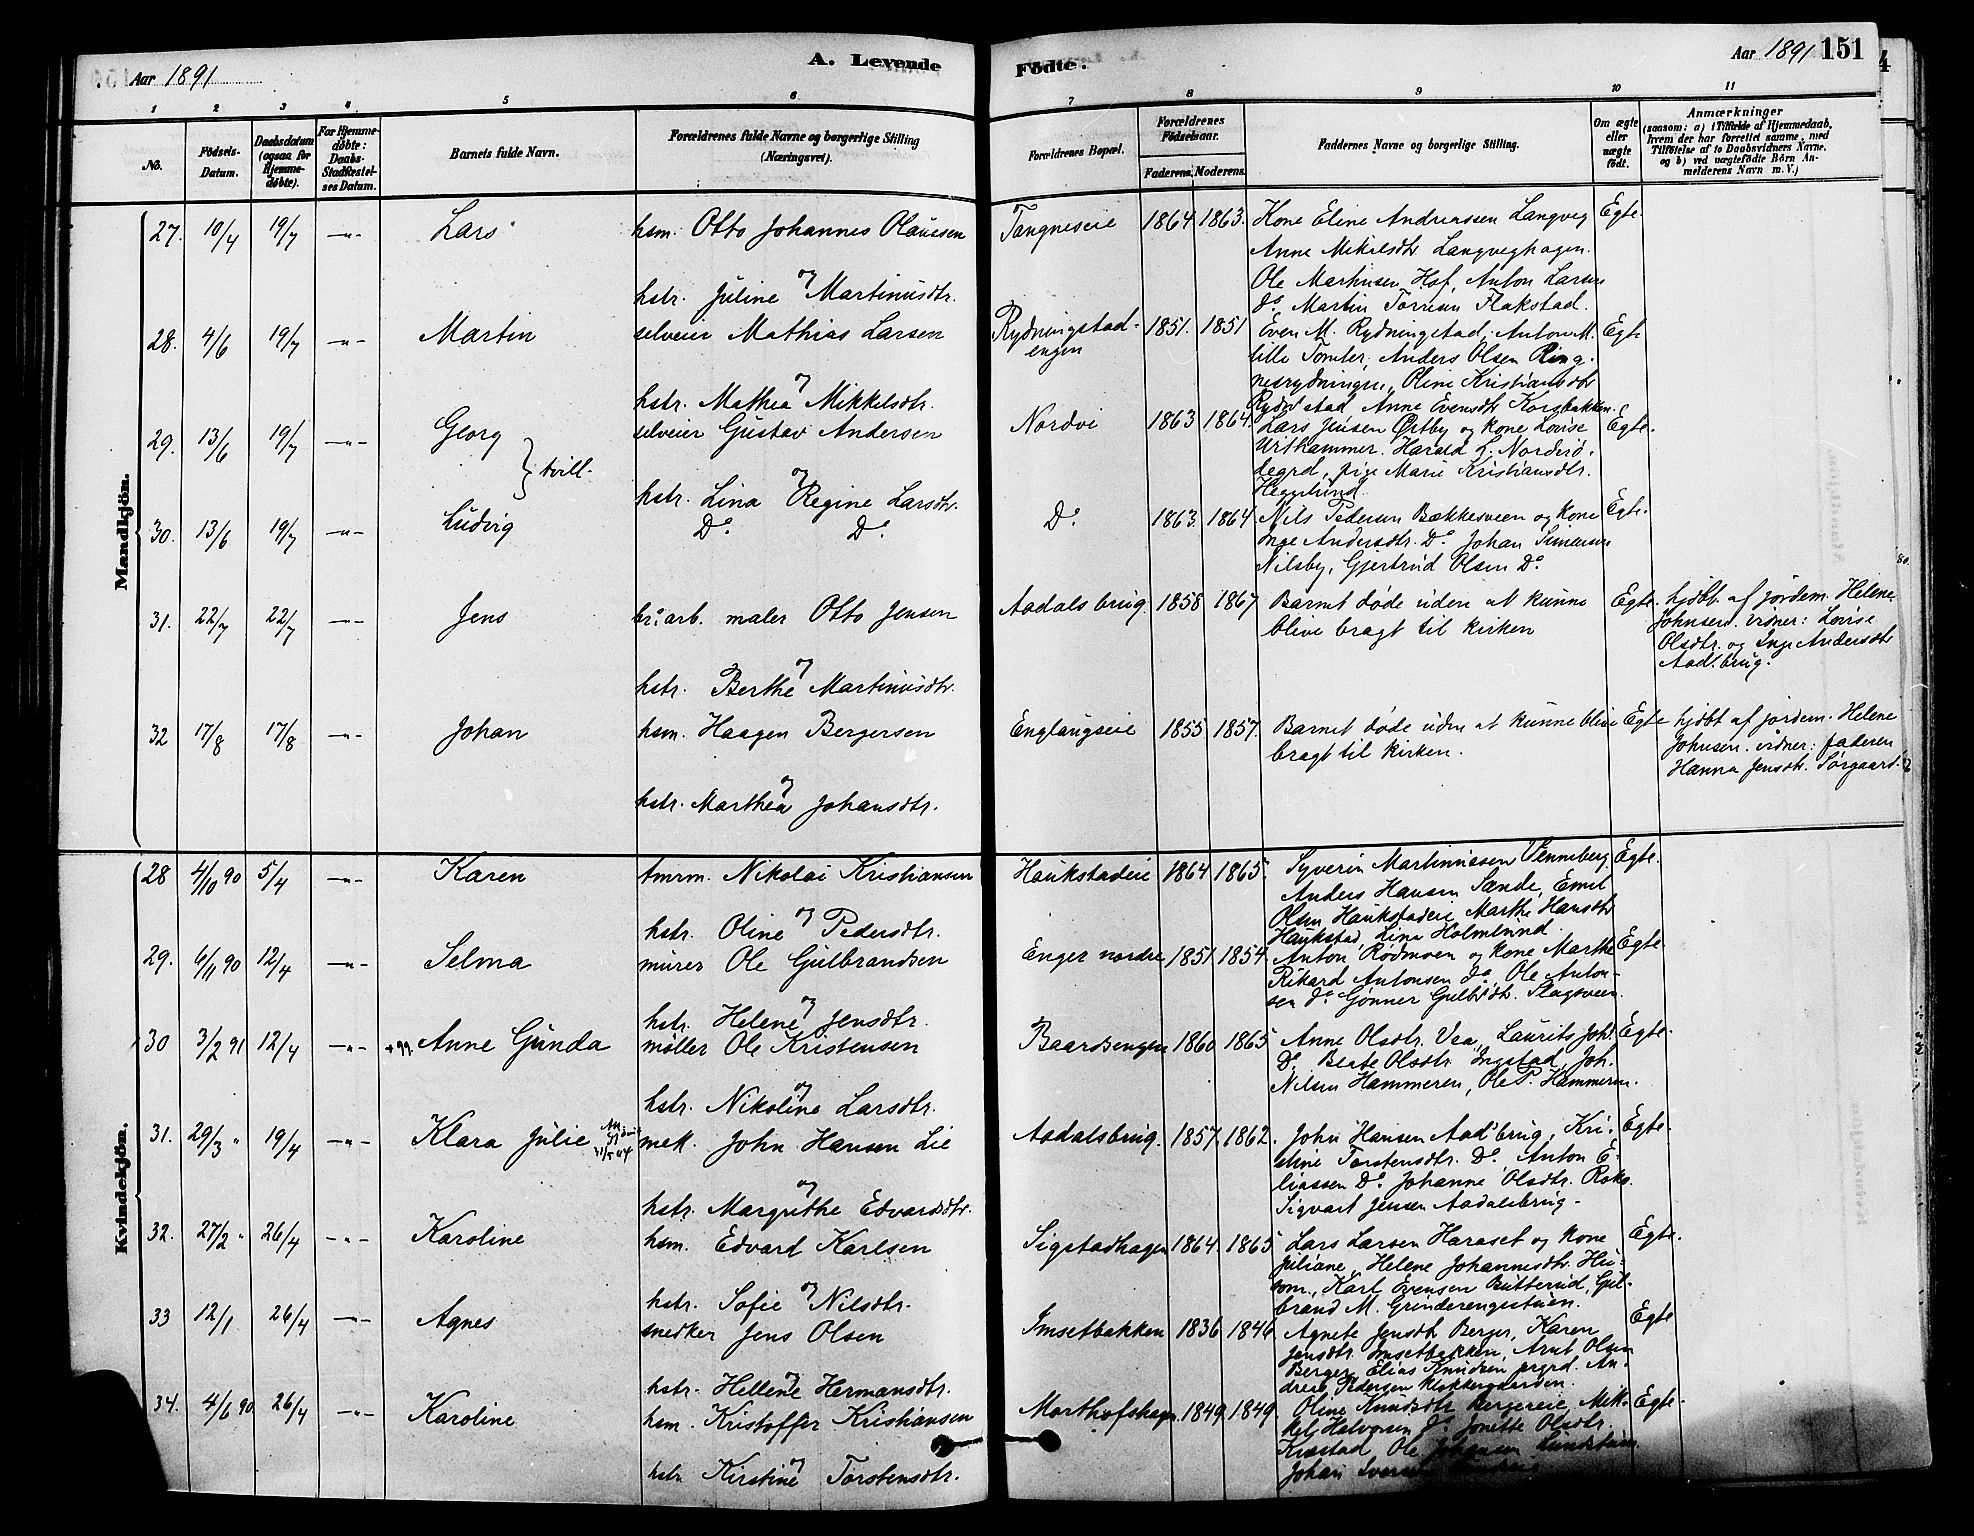 Aar 1891
A. Levende
Födte.
Aar 1891
151
1 2 3 4 5 6 7 8 9 10 11
No.
Födsels-Datum.
Daabsdatum (ogsaa for Hjemme-döbte).
For Hjemme-döbte: Daabs-Stadfæstel-ses Datum.
Barnets fulde Navn.
Forældrenes fulde Navne og borgerlige Stilling (Næringsvei).
Forældrenes Bopæl.
Forældrenes Födselsaar.
Faderens. Moderens.
Faddernes Navne og borgerlige Stilling.
Om ægte eller uægte födt.
Anmærkninger
(saasom: a) i Tilfælde af Hjemmedaab,
hvem der har forrettet samme, med
Tilföielse af to Daabsvidners Navne,
og b) ved uægtefödte Börn An-
melderens Navn m. V.)
Mandkjön.
27. 10/4 19/7 -"- Lars hsm. Otto Johannes Olausen
og
hstr. Juline Martinusdtr.
Tangneseie 1864 1863. Kone Eline Andreassen Langveg Egte.
Anne Mikelsdtr Langveghagen.
Ole Martinsen Hof, Anton Larsen
Do. Martin Flakstad.
28. 4/6 19/7 -"- Martin selveier Mathias Larsen
og
hstr. Mathea Mikkelsdtr.
Rydningstad-
engen 1851. 1851 Even M. Rydningstad, Anton M. Egte
lille Tomter, Anders Olsen Ring-
nesrydningen, Oline Kristiansdtr
Rydnstad Anne Evensdtr Korsbakken.
29. 13/6 19/7 -"- Georg } tvill. selveier Gustav Andersen
og
hstr. Lina Regine Larsdtr.
Nordvi 1863 1864. Lars Jensen Østby og kone Lovise Egte.
Harald L.
pige Marie Kristiansdtr.
Heggelund.
30. 13/6 19/7 -"- Ludvig Do. Do.
Do. 1863. 1864 Nils Pedersen Bækkesveen og kone Egte.
Inge Andersdtr. Do. Johan Simensen
Nilsby, Gjertrud Olsen Do.
31. 22/7 22/7 -"- Jens br. arb. maler Otto Jensen
og
hstr. Berthe Martinusdtr.
Aadals brug. 1858 1867 Barnet døde uden at kunne Egte.
blive bragt til kirken
hjdbt. af jordem. Helene
Johnsen. vidner: Lovise
Olsdtr. og Inge Andersdtr
Aadl.brug.
32 17/8 17/8 -"- Johan hsm. Haagen Bergersen
og
hstr. Marthea Johansdtr.
Englaugseie 1855 1857. Barnet døde uden at kunne blive Egte
bragt til kirken.
hjdbt af jordem. Helene
Johnsen. vidner: faderen,
Hanna Jensdtr. Sörgaard.
Kvindekjön.
28 4/10 90 5/4 -"- Karen tmrm. Nikolai Kristiansen
og
hstr. Oline Pedersdtr.
Haukstadeie 1864 1865. Syverin Martiniusen Venneberg. Egte.
Anders Hansen Sande, Emil
Olsen Haukstadeie Marthe Hansdtr
Haukstad, Lina Holmlund.
29. 6/11 90 12/4 -"- Selma murer Ole Gulbrandsen
og
hstr. Helene Jensdtr.
Enger nordre 1851 1854. Anton Rødmoen og kone Marthe Egte.
Rikard Antonsen Do, Ole Anton-
sen Do. Gunner Gulbrdtr. Slagsveen.
30 3/2 91 12/4 -"- Anne Gunda møller Ole Kristensen
og
hstr. Nikoline Larsdtr.
Baardsengen 1860 1865. Anne Olsdtr. Vaa, Laurits Joh. Egte.
Do. Beate Olsdtr. Ingstad, Joh.
Nilsen Hammeren, Ole P. Hammeren.
31. 29/3 " 19/4 -"- Klara Julie mek. John Hansen Lie
og
hstr. Margrethe Edvardsdtr.
Aadalsbrug. 1857. 1862. John Hansen Aad.brug, Kri- Egte
stine Torstensdtr. Do. Anton E-
liassen Do. Johanne Olsdtr. Roko.
Sigvart Jensen Aadalsbrug.
32. 27/2 " 26/4 -"- Karoline hsm. Edvard Karlsen
og
hstr. Sofie Nilsdtr.
Sigstadhagen 1864. 1865 Lars Larsen Haraset og kone Egte.
Juliane, Helene Johannesdtr. Hu-
som, Karl Evensen Butterud, Gul-
brand M. Grinderengsstuen.
33 12/1 26/4 -"- Agnes snedker Jens Olsen
og
hstr. Hellene Hermansdtr.
Imsetbakken 1836 1846 Agnete Jensdtr Berger, Karen Egte
Jensdtr. Imsetbakken, Arnt Olsen
Berger Elias Knudsen prgrd. An-
dreas Pedersen Klokkergaarden.
34. 4/6 90 26/4 -"- Karoline hsm. Kristoffer Kristiansen
og
hstr. Kirstine Torstensdtr.
Morthofshagen 1849. 1849. Oline Amundsdtr Bergereie, Mik- Egte.
kel Halvorsen Do. Jonette Olsdtr.
Ole Johansen
Johan